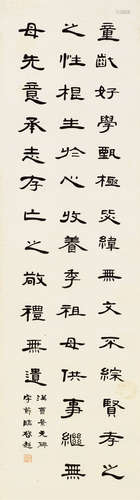 童齔好學甄極毖緯無文不綜賢孝
之性根生於心收養季祖母供事繼
母先意承志存亡之敬禮無遺
漢曹景完碑
啟超